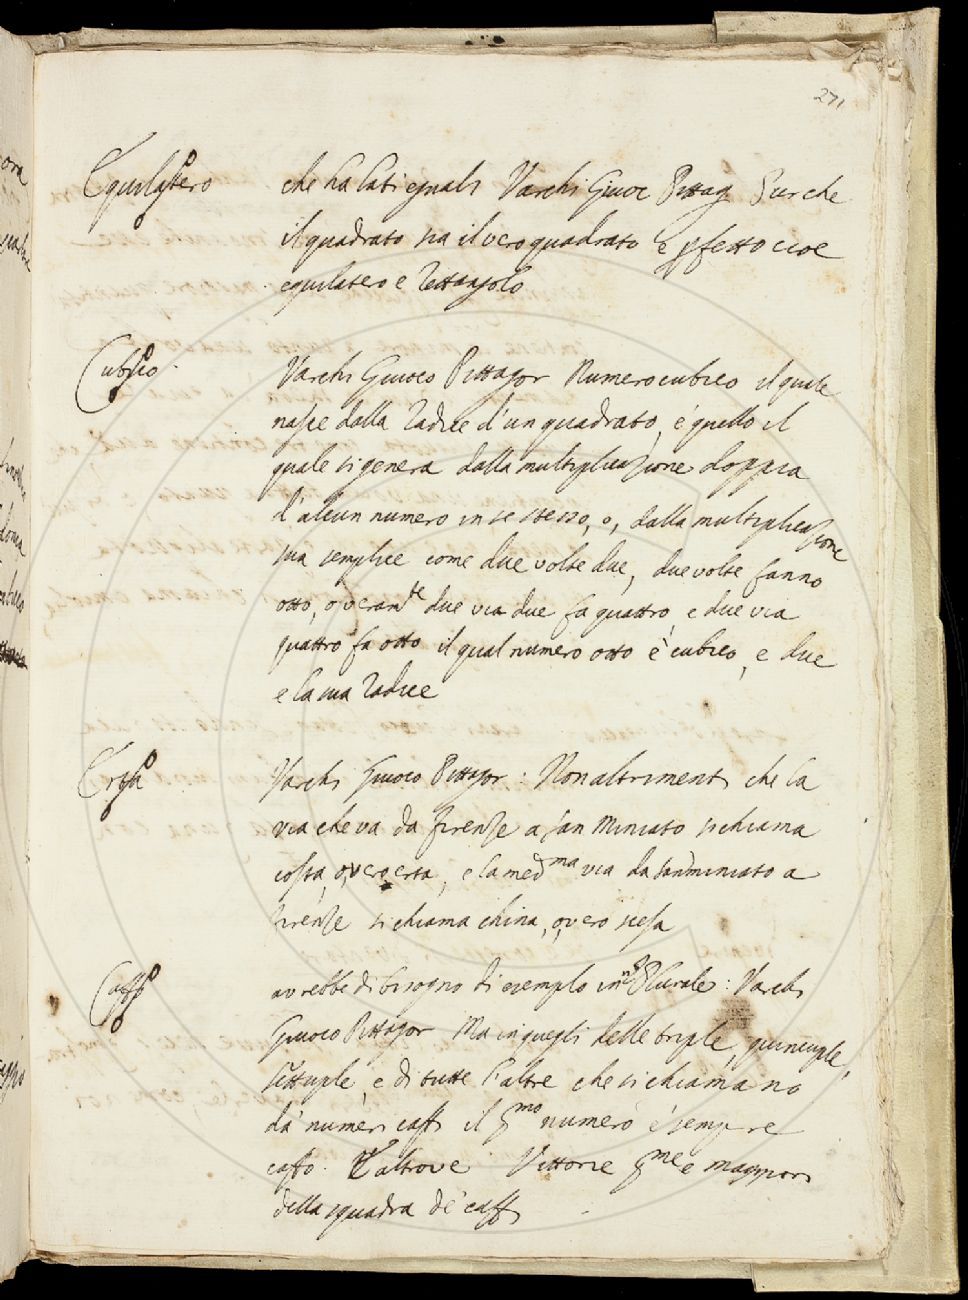 271
Equilatero che ha lati eguali Varchi Giuoc Pittag Pur che
il quadrato sia il vero quadrato e pfetto cioe
equilatero e rettangolo
Cubico. Varchi Giuoco Pittagor Numero cubico il quale
nasce dalla radice d'un quadrato, é quello il
quale si genera dalla multiplicazione doppia
d'alcun numero in se stesso, o, dalla multiplicazione
sua semplice come due volte due, due volte fanno
otto, overante due via due fa quattro, e due via
quattro fa otto il qual numero otto è cubico, e due
e la sua radice
Erta Varchi Giuoco Pittagor: Non altrimenti che la
via che va da firenze a san Miniato si chiama
costa, overo erta, e la medma via da san miniato a
firenze si chiama china, overo scesa
Caffo avrebbe di bisogno di esempio in no plurale: Varchi
Giuoco Pittagor Ma in quegli delle triple, quincuple,
settuple, e di tutte l'altre che si chiamano
da' numeri caffi il pmo numero è sempre
caffo. E altrove Vittorie pme e maggiori
della squadra de' caffi